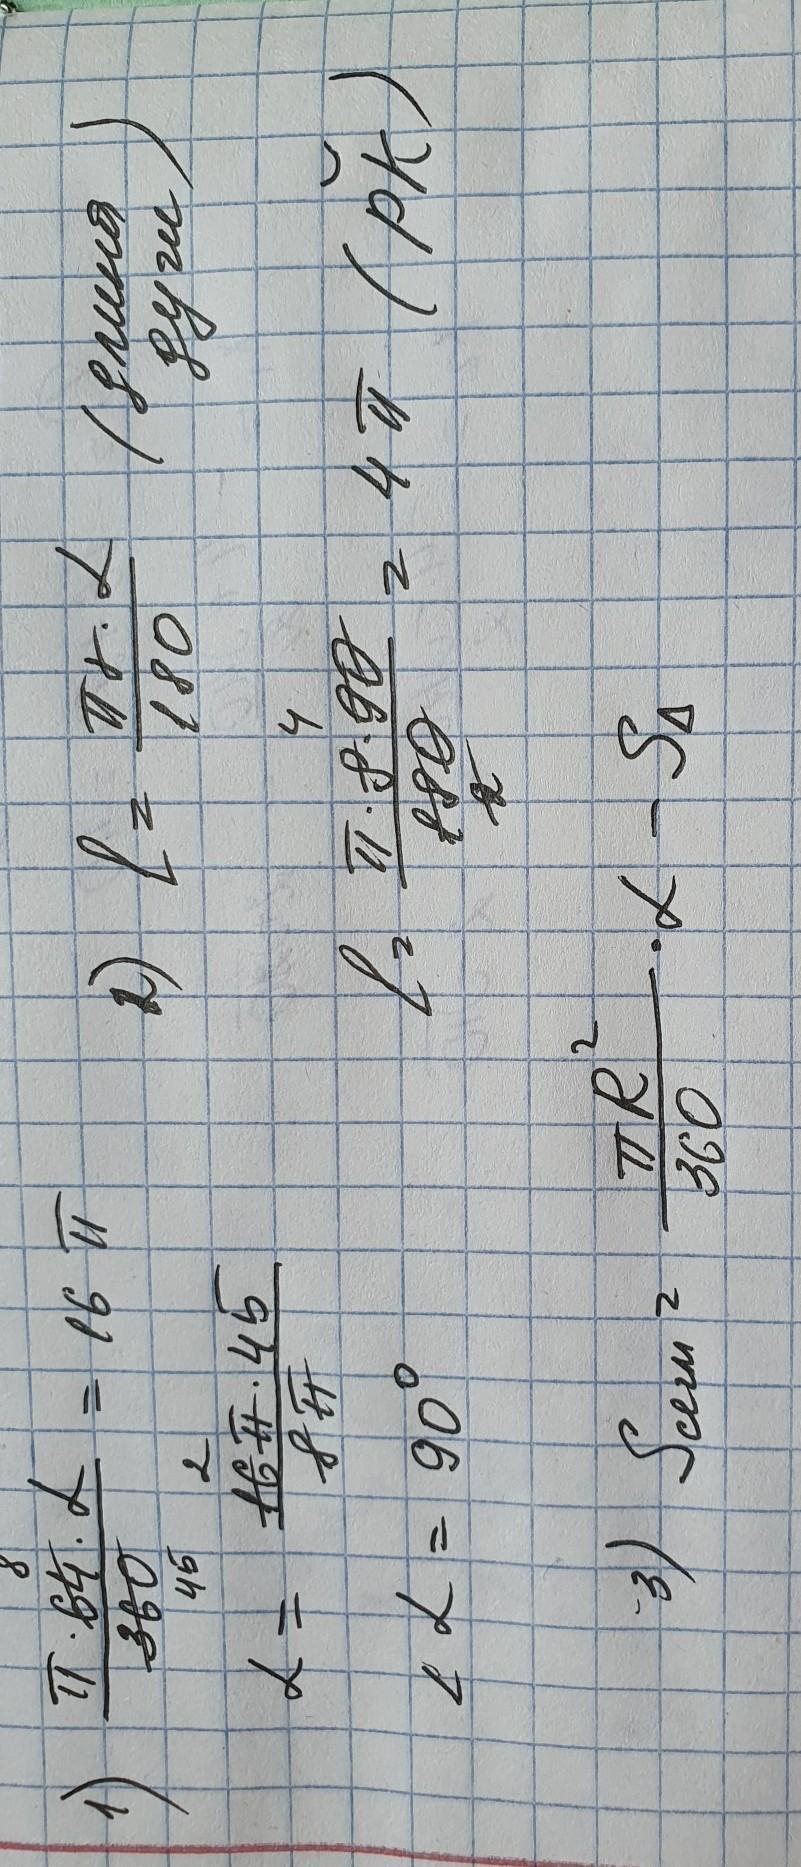 1) π·64·α/360 = 16π
8
45
2
α = 16π·45/8π
∠α = 90°
2) l = πr·α/180 (длина дуги)
4
l = π·8·90/180 = 4π (рк̆)
2
3) Sсегм = πR²/360 · α – S△